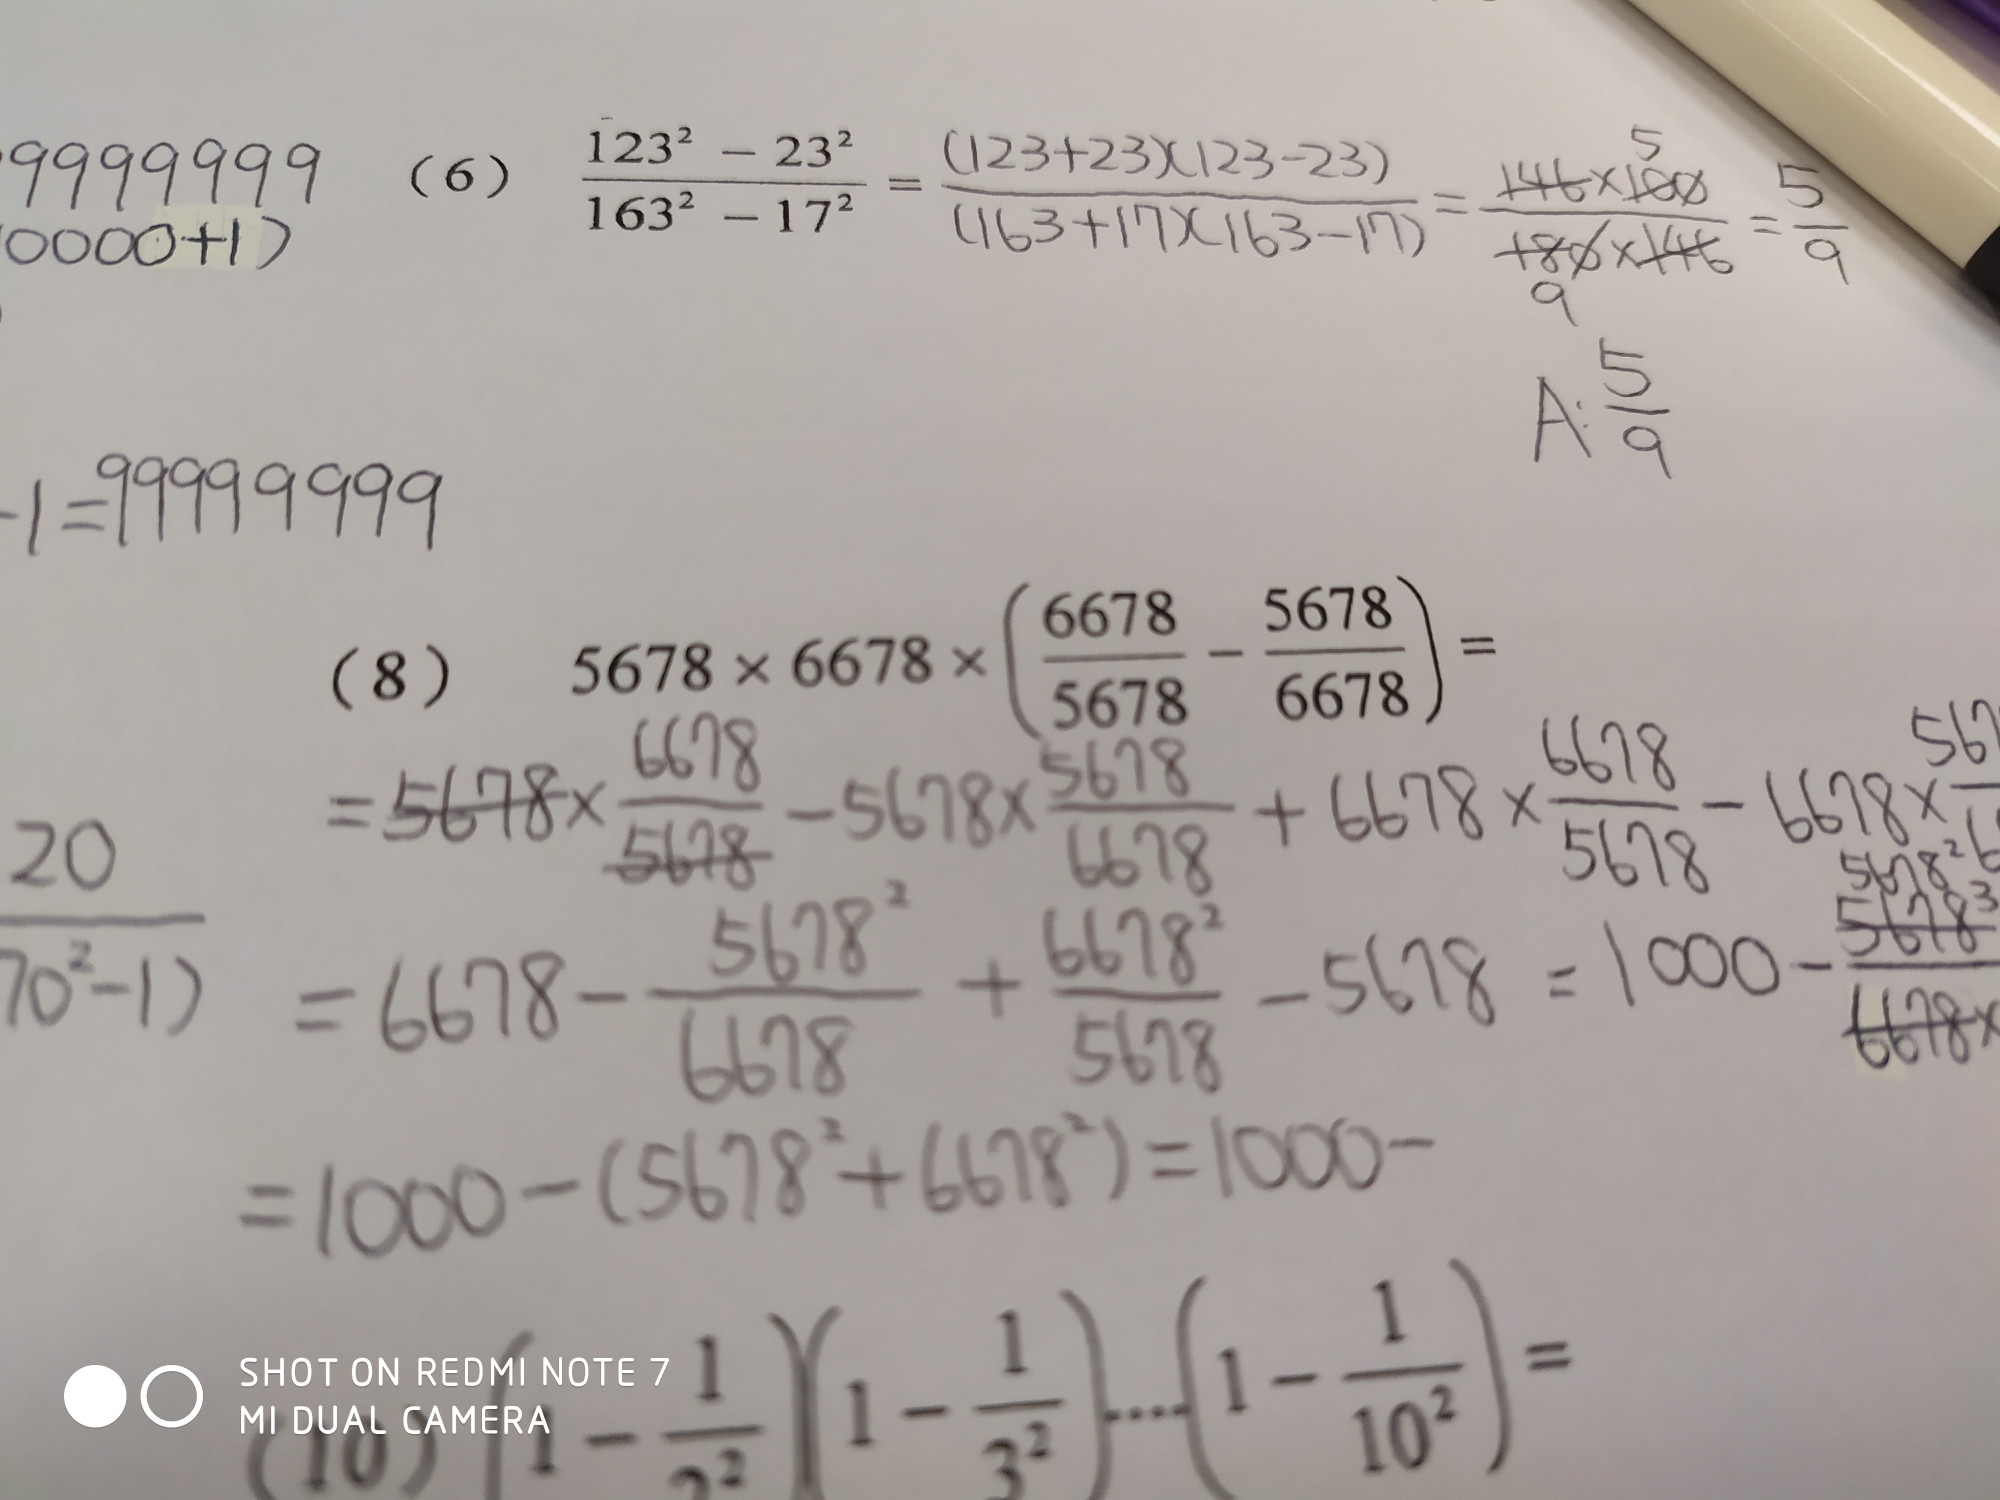 9999999
0000+1)
(6) 123² - 23² / 163² - 17² = (123+23)(123-23) / (163+17)(163-17) = 146×100 / 180×146 = 5/9
5
9
A: 5/9
-1=99999999
(8) 5678 × 6678 × (6678/5678 - 5678/6678) =
= 5678 × 6678/5678 - 5678 × 5678/6678 + 6678 × 6678/5678 - 6678 ×
20
70²-1)
= 6678 - 5678²/6678 + 6678²/5678 - 5678 = 1000 -
5678²
5678³
6678×
= 1000 - (5678² + 6678²) = 1000 -
(10) (1 - 1/2²)(1 - 1/3²)....(1 - 1/10²) =
SHOT ON REDMI NOTE 7
MI DUAL CAMERA